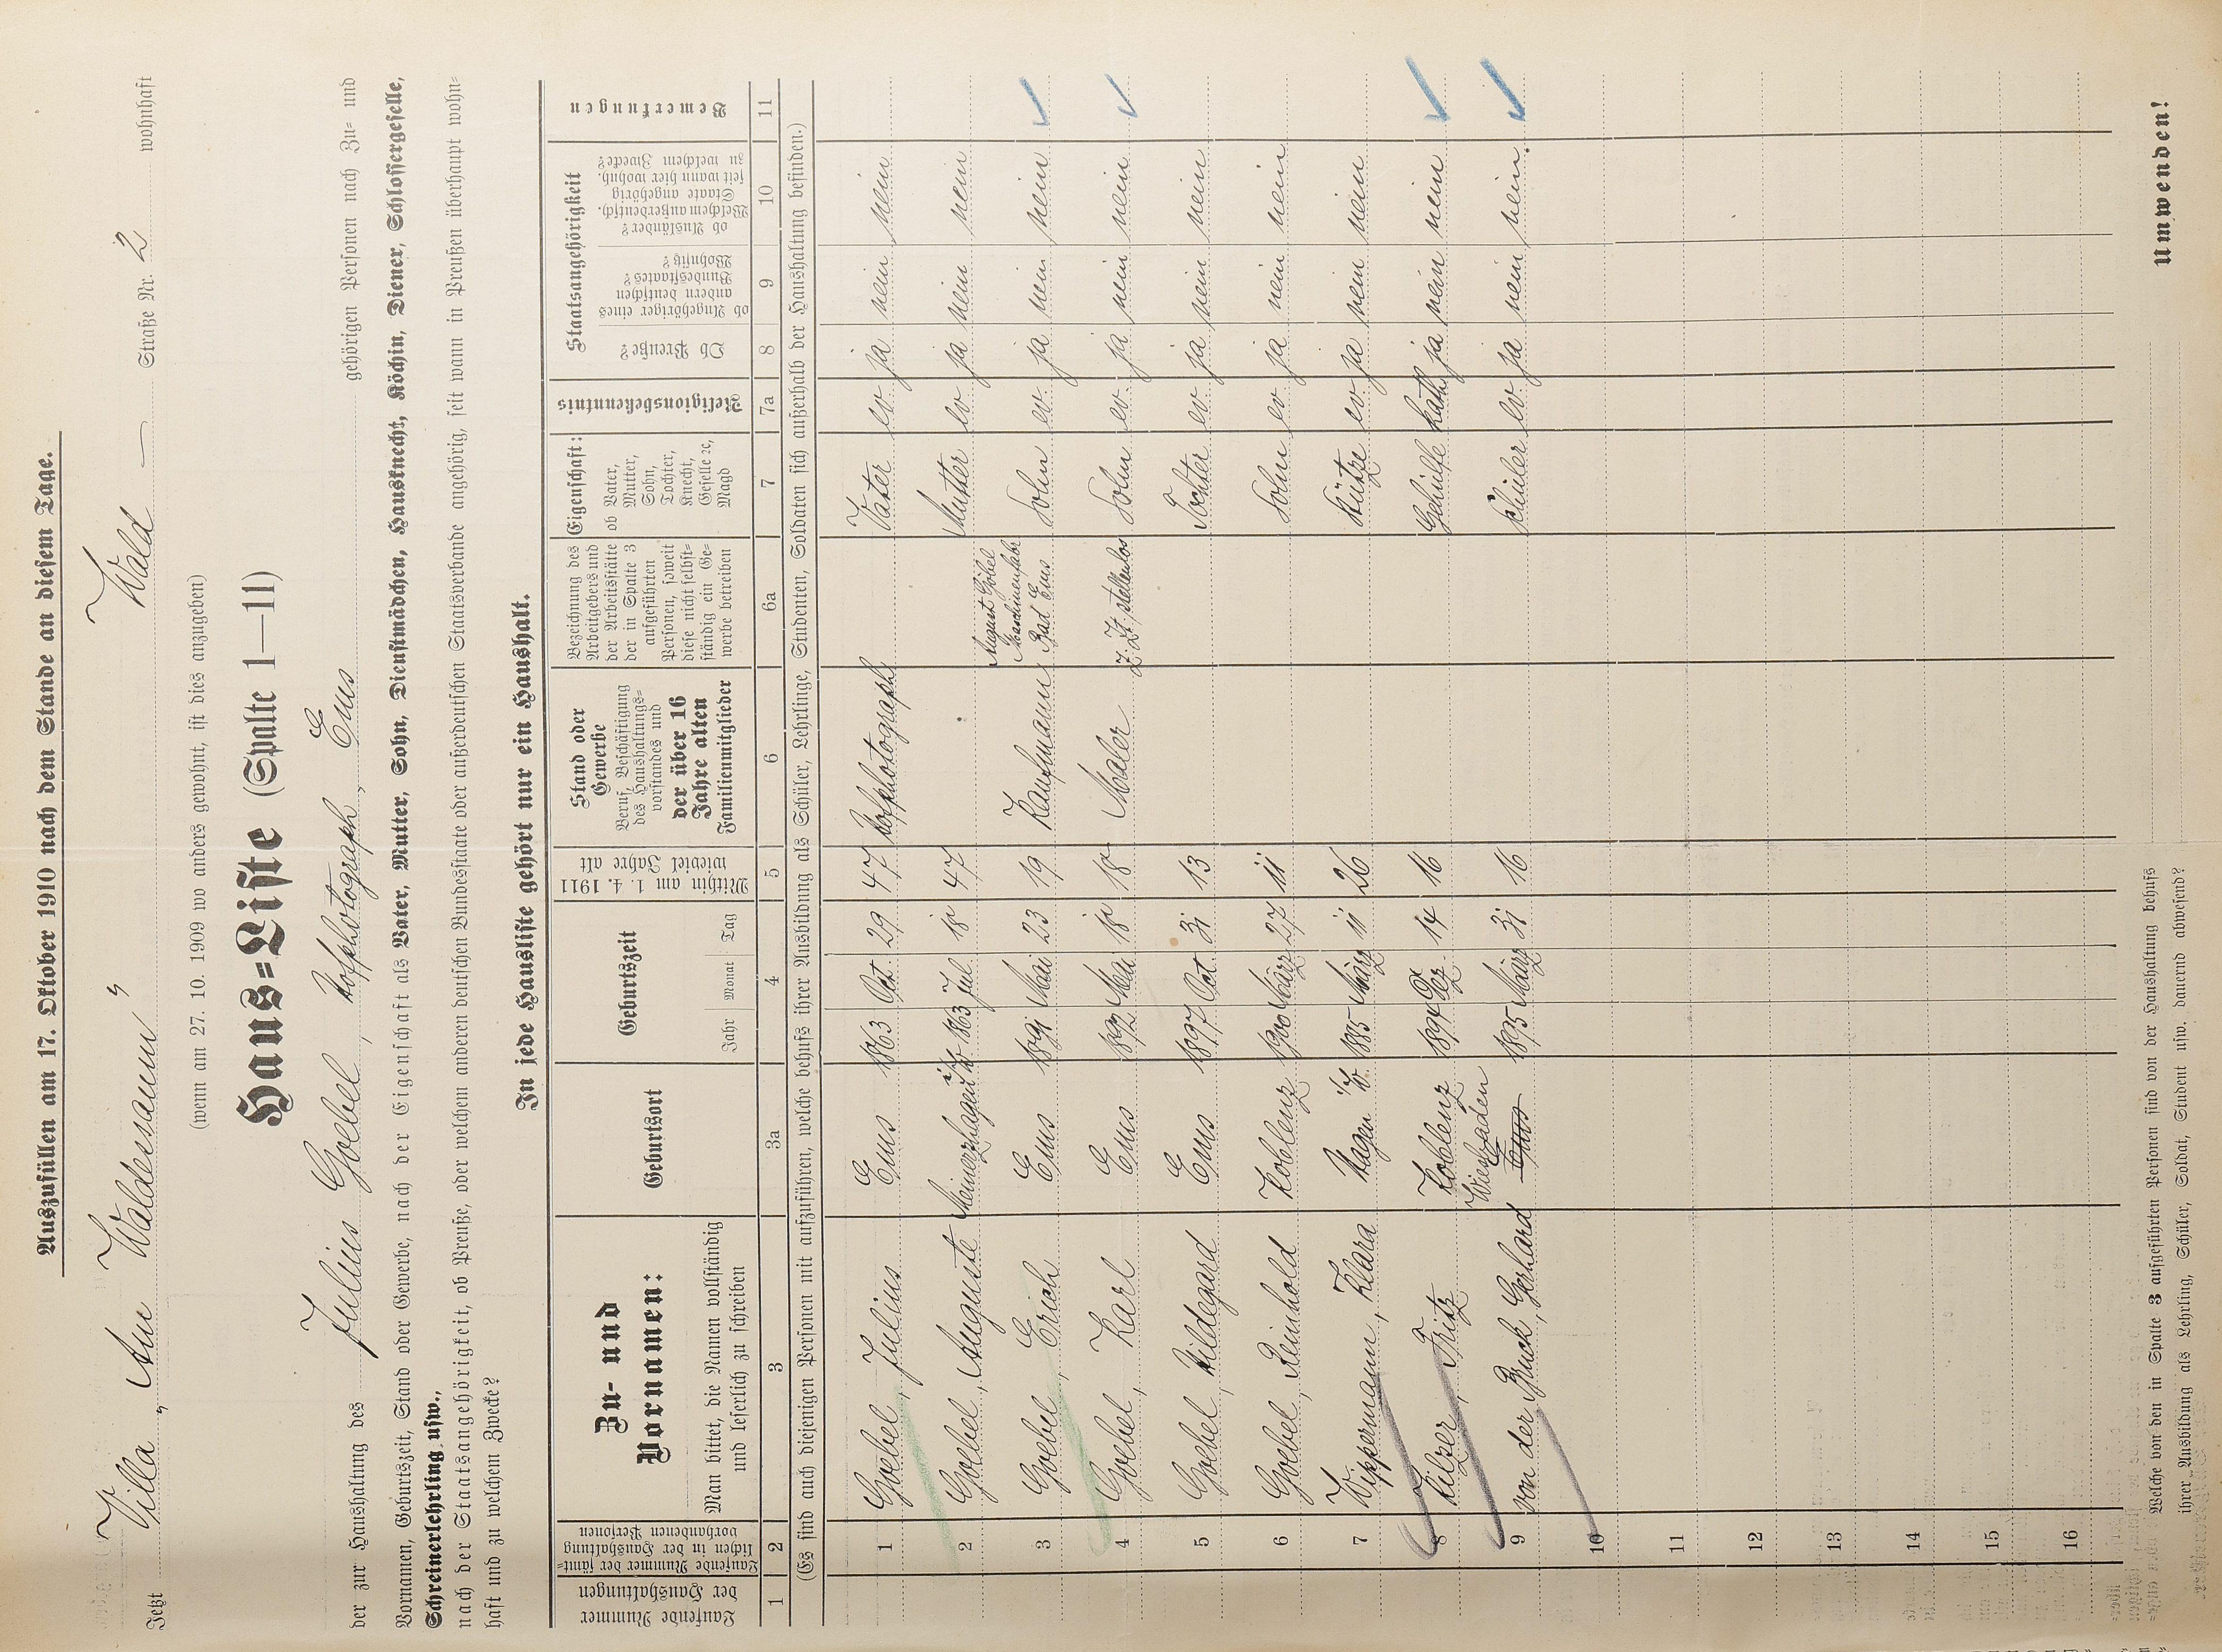 Auszufüllen am 17. Oktober 1910 nach dem Stande an diesem Tage.
Jetzt Villa „Am Waldessaum" Wald — Straße Nr. 2 wohnhaft
(wenn am 27. 10. 1909 wo anders gewohnt, ist dies anzugeben)
Haus=Liste (Spalte 1—11)
der zur Haushaltung des Julius Goebel, Hofphotograph, Ems gehörigen Personen nach Zu= und
Vornamen, Geburtszeit, Stand oder Gewerbe, nach der Eigenschaft als Vater, Mutter, Sohn, Dienstmädchen, Hausknecht, Köchin, Diener, Schlossergeselle,
Schreinerlehrling usw.,
nach der Staatsangehörigkeit, ob Preuße, oder welchem anderen deutschen Bundesstaate oder außerdeutschen Staatsverbande angehörig, seit wann in Preußen überhaupt wohn=
haft und zu welchem Zwecke?
In jede Hausliste gehört nur ein Haushalt.
Laufende Nummer der Haushaltungen
Laufende Nummer der sämt=lichen in der Haushaltung vorhandenen Personen
Zu- und Vornamen:
Man bittet, die Namen vollständig und leserlich zu schreiben
Geburtsort
Geburtszeit
Jahr Monat Tag
Mithin am 1. 4. 1911 wieviel Jahre alt
Stand oder Gewerbe
Beruf, Beschäftigung des Haushaltungs=vorstandes und der über 16 Jahre alten Familienmitglieder
Bezeichnung des Arbeitgebers und der Arbeitsstätte der in Spalte 3 aufgeführten Personen, soweit diese nicht selbst=ständig ein Ge=werbe betreiben
Eigenschaft:
ob Vater, Mutter, Sohn, Tochter, Knecht, Geselle ꝛc, Magd
Religionsbekenntnis
Staatsangehörigkeit
Ob Preuße?
ob Angehöriger eines andern deutschen Bundesstaates? Wohnsitz?
ob Ausländer? Welchem außerdeutsch. Staate angehörig seit wann hier wohnh. zu welchem Zwecke?
Bemerkungen
1 2 3 3a 4 5 6 6a 7 7a 8 9 10 11
(Es sind auch diejenigen Personen mit aufzuführen, welche behufs ihrer Ausbildung als Schüler, Lehrlinge, Studenten, Soldaten sich außerhalb der Haushaltung befinden.)
1 Goebel, Julius Ems 1863 Oct. 29 47 Hofphotograph Vater ev. ja nein nein
2 Goebel, Auguste Meinerzhagen i/W 1863 Jul 18 47 Mutter ev. ja nein nein
3 Goebel, Erich Ems 1891 Mai 23 19 Kaufmann August Göbel Maschinenfabr Bad Ems Sohn ev. ja nein nein
4 Goebel, Karl Ems 1892 Mai 18 18 Maler z. Zt. stellenlos Sohn ev. ja nein nein
5 Goebel, Hildegard Ems 1897 Oct. 31 13 Tochter ev. ja nein nein
6 Goebel, Reinhold Koblenz 1900 März 27 11 Sohn ev. ja nein nein
7 Wippermann, Klara Hagen i/W. 1885 März 11 26 Stütze ev. ja nein nein
8 Hilzer, Fritz Koblenz 1894 Dez. 14 16 Gehülfe kath. ja nein nein
9 von der Bruck, Gerhard Wiesbaden Ems 1895 März 31 16 Schüler ev. ja nein nein.
10
11
12
13
14
15
16
Welche von den in Spalte 3 aufgeführten Personen sind von der Haushaltung behufs
ihrer Ausbildung als Lehrling, Schüler, Soldat, Student usw. dauernd abwesend?
Umwenden!